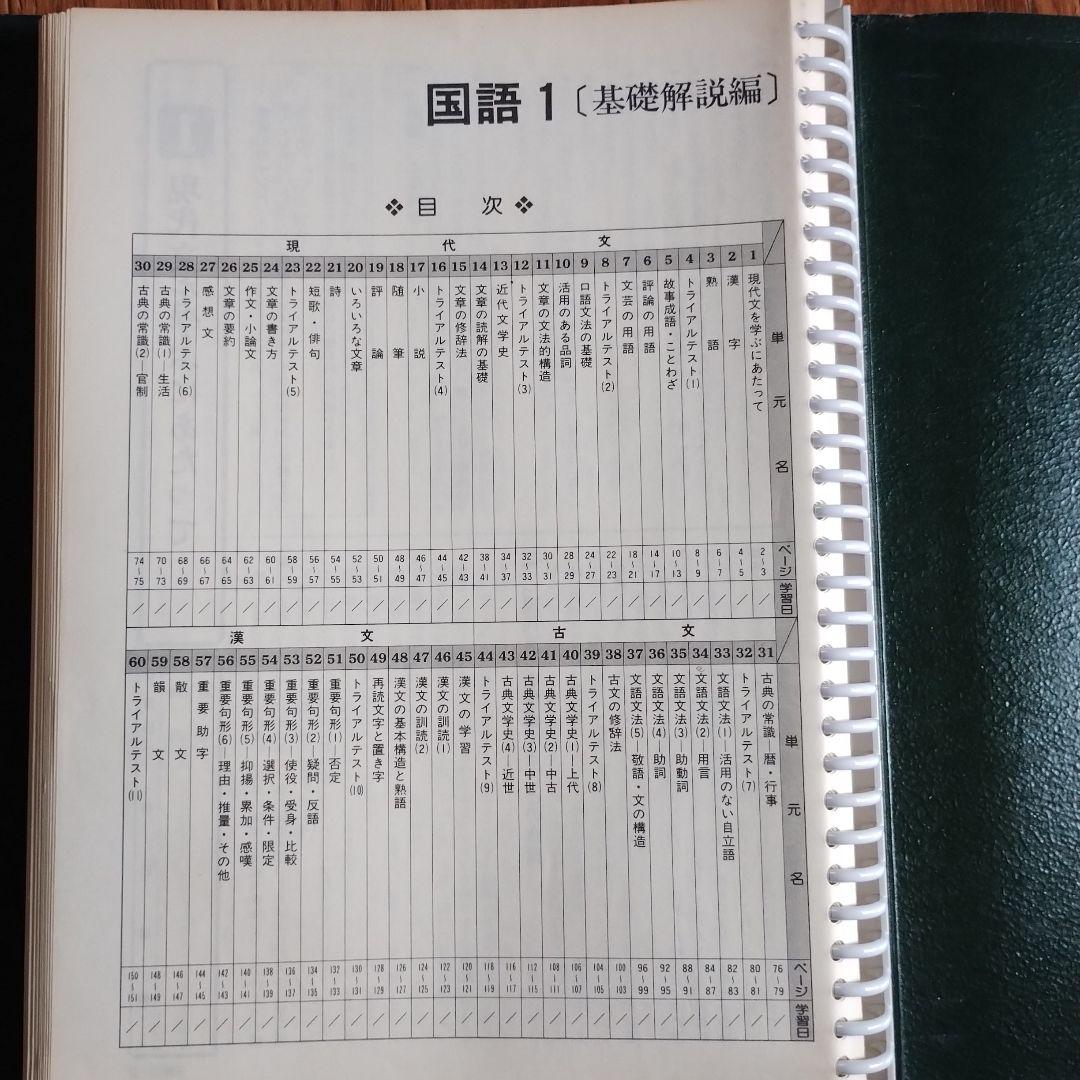 国語1〔基礎解説編〕
❖目 次❖
現代文
単元名 ページ 学習日
1 現代文を学ぶにあたって 2~3
2 漢字 4~5
3 熟語 6~7
4 トライアルテスト(1) 8~9
5 故事成語・ことわざ 10~13
6 評論の用語 14~17
7 文芸の用語 18~21
8 トライアルテスト(2) 22~23
9 口語文法の基礎 24~27
10 活用のある品詞 28~29
11 文章の文法的構造 30~31
12 トライアルテスト(3) 32~33
13 近代文学史 34~37
14 文章の読解の基礎 38~41
15 文章の修辞法 42~43
16 トライアルテスト(4) 44~45
17 小説 46~47
18 随筆 48~49
19 評論 50~51
20 いろいろな文章 52~53
21 詩 54~55
22 短歌・俳句 56~57
23 トライアルテスト(5) 58~59
24 文章の書き方 60~61
25 作文・小論文 62~63
26 文章の要約 64~65
27 感想文 66~67
28 トライアルテスト(6) 68~69
29 古典の常識(1) 生活 70~73
30 古典の常識(2) 官制 74~75
古文
漢文
単元名 ページ 学習日
31 古典の常識―暦・行事 76~79
32 トライアルテスト(7) 80~81
33 文語文法(1)―活用のない自立語 82~83
34 文語文法(2)―用言 84~87
35 文語文法(3)―助動詞 88~91
36 文語文法(4)―助詞 92~95
37 文語文法(5) 敬語・文の構造 96~99
38 古文の修辞法 100~103
39 トライアルテスト(8) 104~105
40 古典文学史(1)―上代 106~107
41 古典文学史(2)―中古 108~111
42 古典文学史(3)―中世 112~115
43 古典文学史(4)―近世 116~117
44 トライアルテスト(9) 118~119
45 漢文の学習 120~121
46 漢文の訓読(1) 122~123
47 漢文の訓読(2) 124~125
48 漢文の基本構造と熟語 126~127
49 再読文字と置き字 128~129
50 トライアルテスト(10) 130~131
51 重要句形(1)―否定 132~133
52 重要句形(2) 疑問・反語 134~135
53 重要句形(3) 使役・受身・比較 136~137
54 重要句形(4) 選択・条件・限定 138~139
55 重要句形(5) 抑揚・累加・感嘆 140~141
56 重要句形(6)―理由・推量・その他 142~143
57 重要助字 144~145
58 散文 146~147
59 韻文 148~149
60 トライアルテスト(11) 150~151